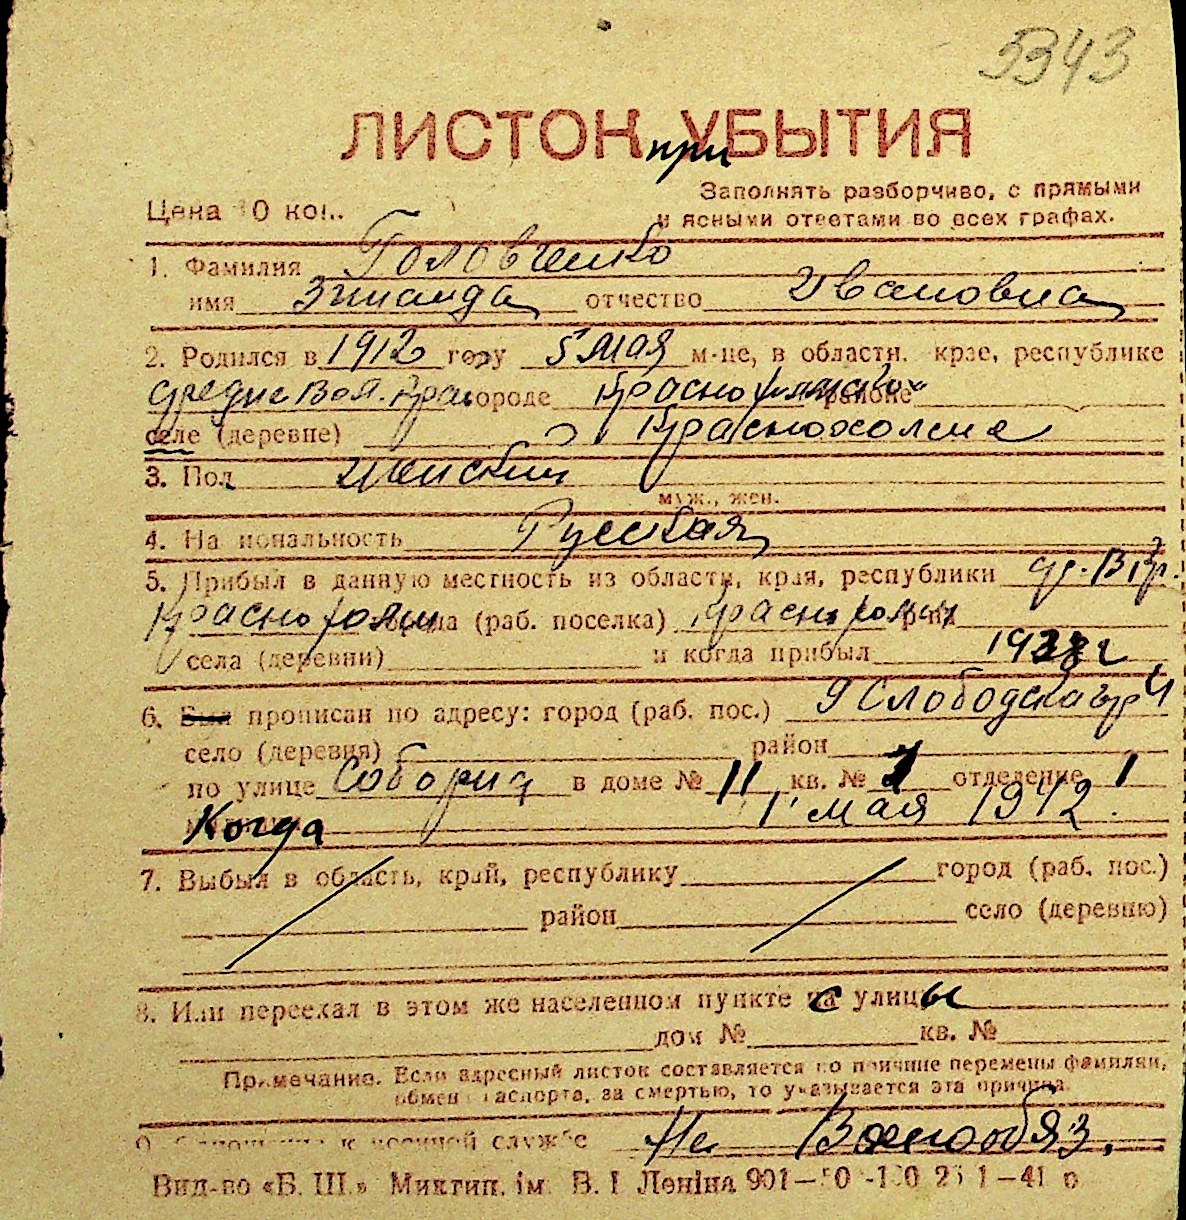 5343
ЛИСТОК при УБЫТИЯ
Заполнять разборчиво, с прямыми
Цена 10 коп. и ясными ответами во всех графах.
1. Фамилия Головченко
имя Зинаида отчество Ивановна
2. Родился в 1912 году 5 мая м-це, в области, крае, республике
Средне Вол. кра городе Красно районе
селе (деревне) Краснохолме
3. Пол женский
муж., жен.
4. Национальность Русская
5. Прибыл в данную местность из области, края, республики ср. В. кр.
(раб. поселка)
села (деревни) и когда прибыл г
6. Был прописан по адресу: город (раб. пос.) Слободская
село (деревня) район
по улице Соборна в доме № 11 кв. № отделение 1
Когда 1 мая 1942.
7. Выбыл в область, край, республику город (раб. пос.)
район село (деревню)
8. Или переехал в этом же населенном пункте с улицы
дом № кв. №
Примечание. Если адресный листок составляется по причине перемены фамилии,
обмена паспорта, за смертью, то указывается эта причина.
9. Отношение к военной службе Не Военообяз.
Вид-во «Б. Ш.» Миктип. ім. В. І Леніна 901—